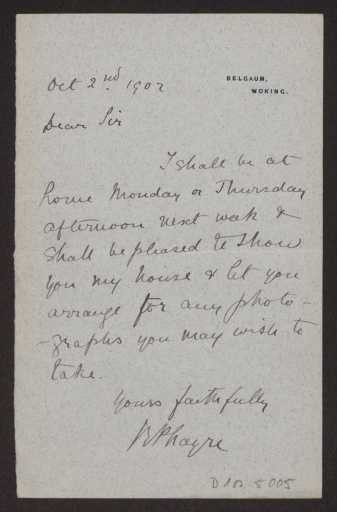 BELGAUM,
WOKING.
Oct 2nd. 1902
Dear Sir
I shall be at
home Monday or Thursday
afternoon next week &
shall be pleased to show
you my house & let you
arrange for any photo-
-graphs you may wish to
take.
Yours faithfully
Phayre
D 5005